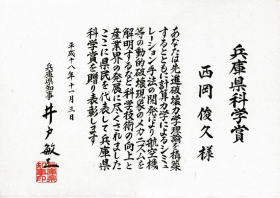 兵庫県科学賞
西岡俊久様
あなたは先進破壊力学理論を構築
するとともに計算力学によるシミュ
レーション手法の開発により航空機
等の動的破壊現象のメカニズムを
解明するなど科学技術の向上と
産業界の発展に尽くされました
ここに県民を代表して兵庫県
科学賞を贈り表彰します
平成十八年十一月三日
兵庫県知事
井戸敏三